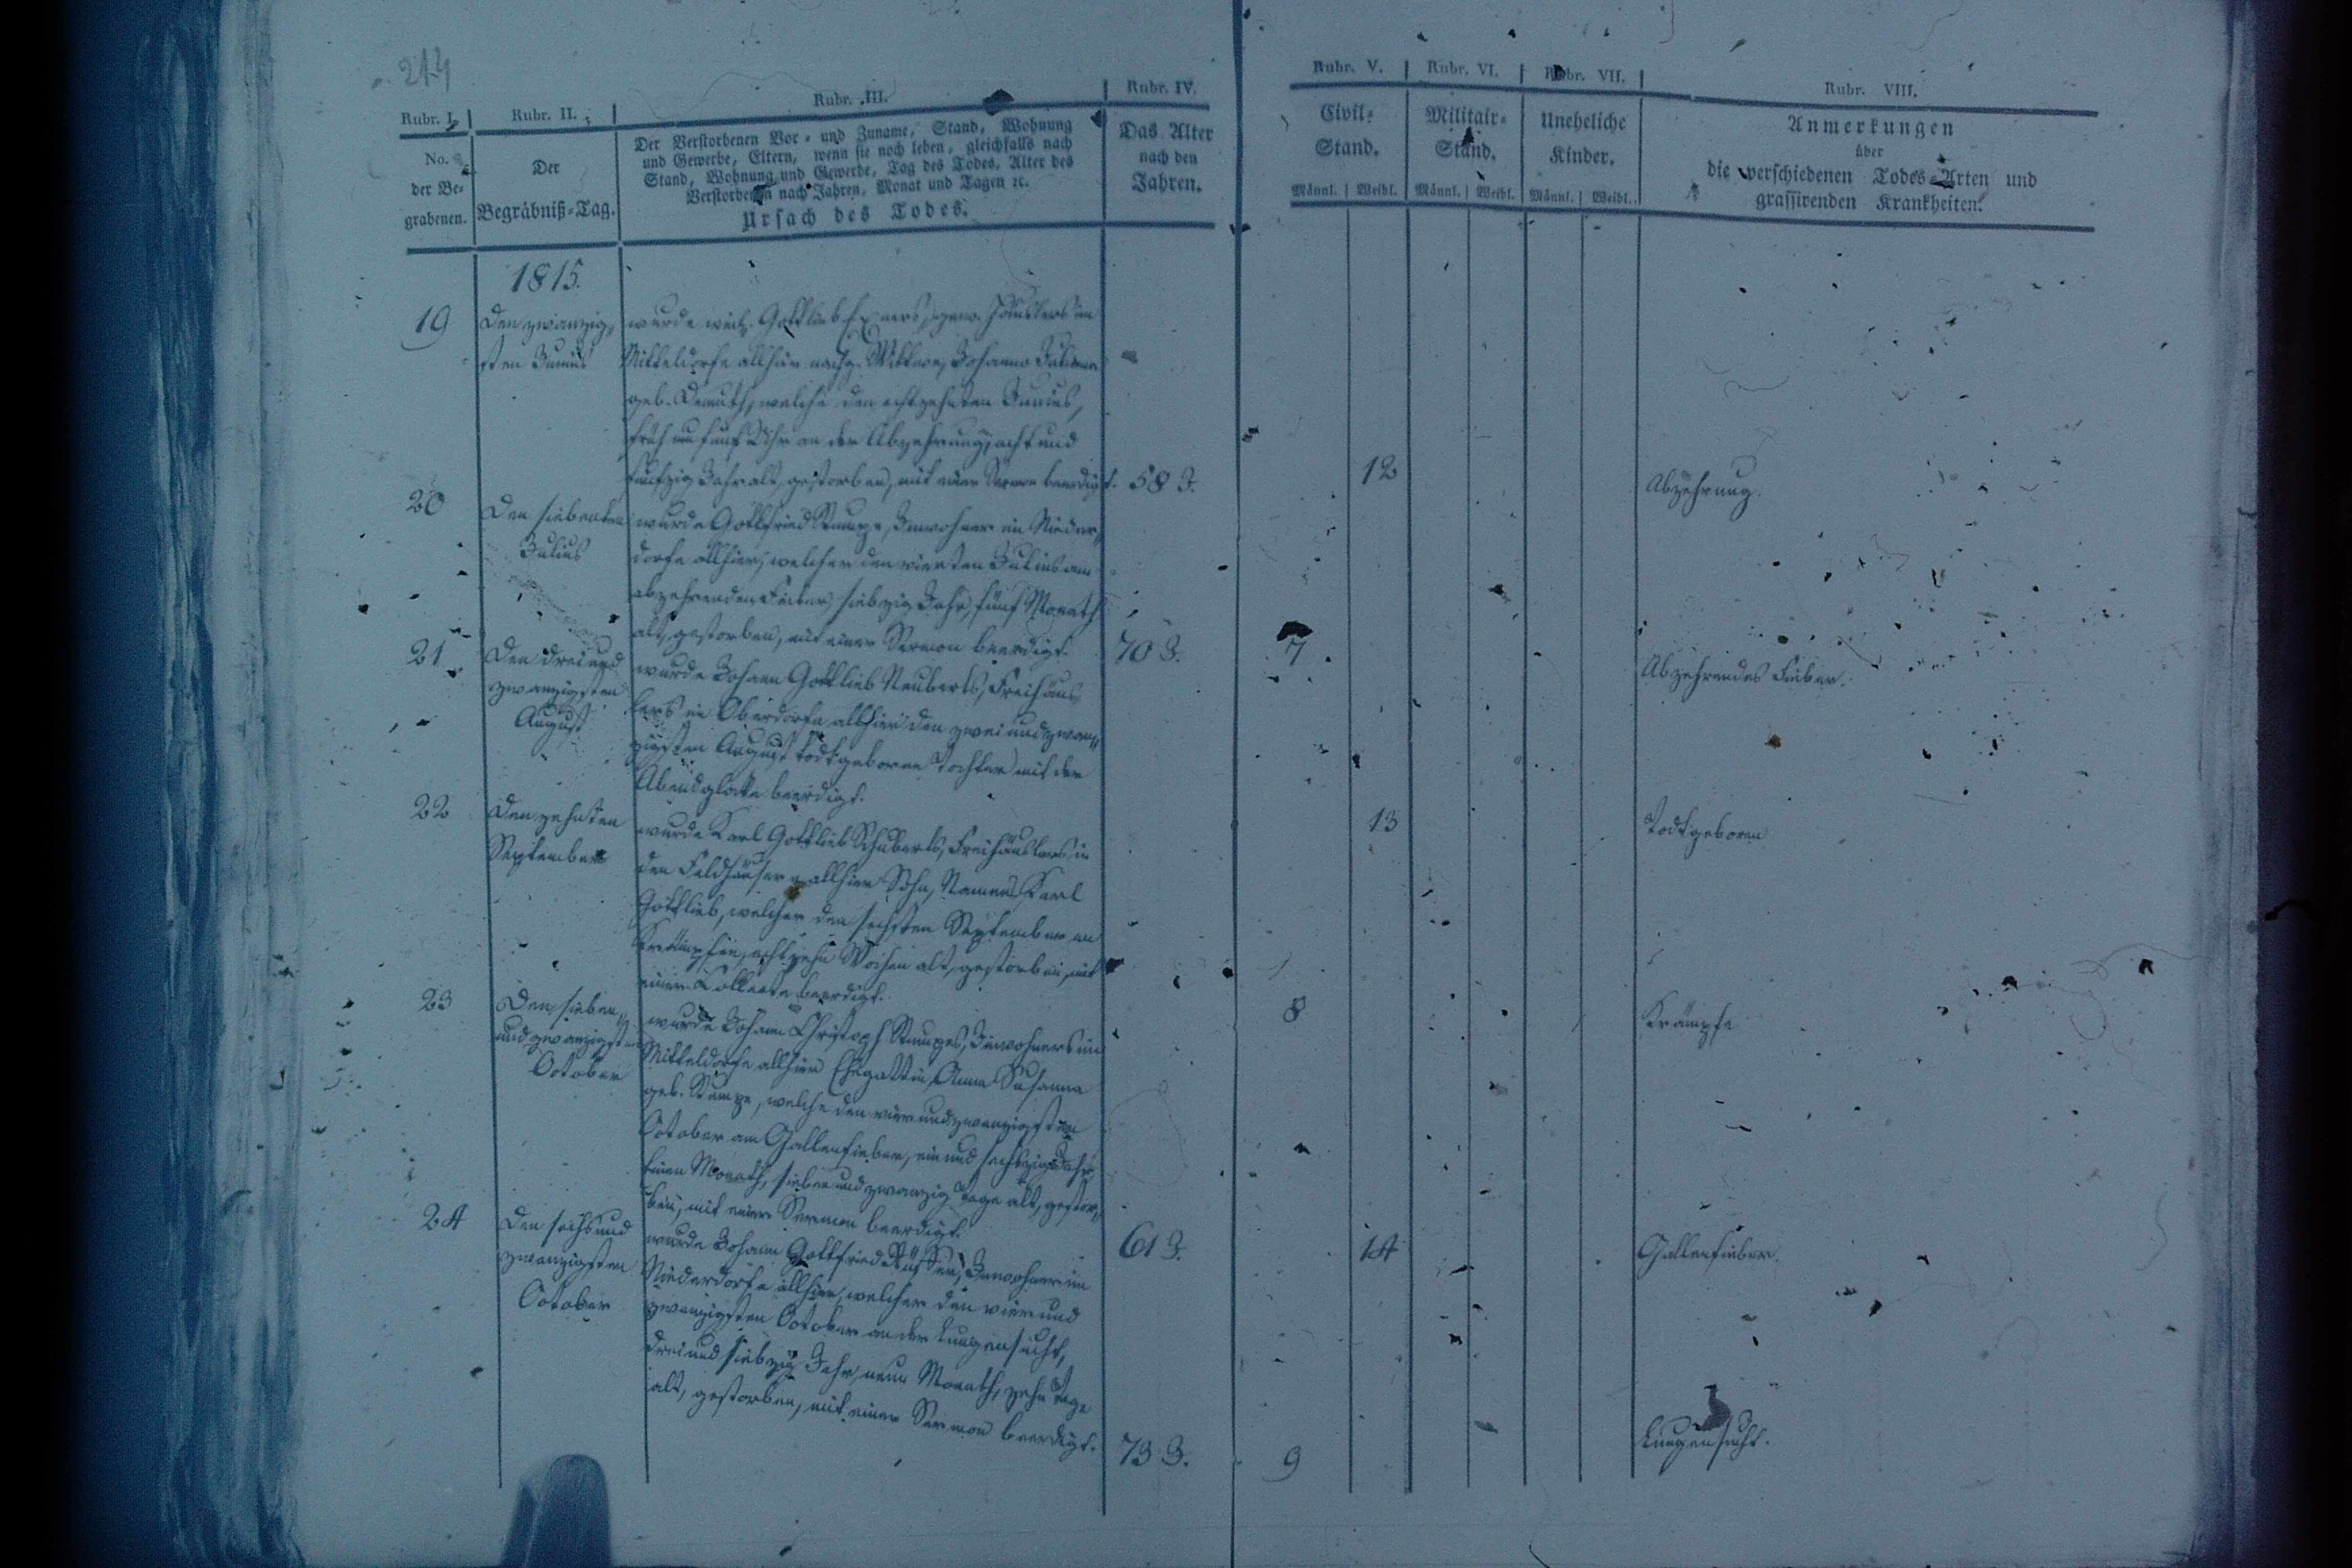 214
Rubr. I.
No.
der Be-
grabenen.
Rubr. II.
Der
Begräbniß-Tag.
Rubr. III.
Der Verstorbenen Vor- und Zuname, Stand, Wohnung
und Gewerbe, Eltern, wenn sie noch leben, gleichfalls nach
Stand, Wohnung und Gewerbe, Tag des Todes, Alter des
Verstorbenen nach Jahren, Monat und Tagen ꝛc.
Ursach des Todes.
Rubr. IV.
Das Alter
nach den
Jahren.
Rubr. V.
Civil-
Stand.
Männl. Weibl.
Rubr. VI.
Militair-
Stand.
Männl. Weibl.
Rubr. VII.
Uneheliche
Kinder.
Männl. Weibl.
Rubr. VIII.
Anmerkungen
über
die verschiedenen Todes-Arten und
grassirenden Krankheiten.
1815.
19
Den zwanzig-
sten Junius
wurde weil. Gottlieb Exners, gew. Häuslers im
Mitteldorfe allhier nachg. Wittwe, Johanna Juliana
geb. Demuth, welche den achtzehnten Junius,
früh um fünf Uhr an der Abzehrung, acht und
fünfzig Jahr alt, gestorben, mit einer Sermon beerdigt.
58 J.
12
Abzehrung.
20
Den siebenten
Julius
wurde Gottfried Stumpe, Inwohner im Nieder-
dorfe allhier, welcher den vierten Julius am
abzehrenden Fieber, siebzig Jahr, fünf Monath
alt, gestorben, mit einer Sermon beerdigt.
70 J.
7
Abzehrendes Fieber.
21
Den dreiund
zwanzigsten
August
wurde Johann Gottlieb Neuberts, Freihäus
lers im Oberdorfe allhier den zweiundzwan-
zigsten August todtgeborne Tochter mit der
Abendglocke beerdigt.
13
Todtgeboren
22
Den zehnten
September
wurde Karl Gottlieb Schuberts, Freihäuslers in
den Feldhäusern allhier Sohn, Namens Karl
Gottlieb, welcher den sechsten September an
Krämpfen, achtzehn Wochen alt, gestorben, mit
einer Collecte beerdigt.
8
Krämpfe
23
Den sieben-
undzwanzigsten
October
wurde Johann Christoph Stumpes, Inwohners im
Mitteldorfe allhier Ehegattin, Anna Susanna
geb. Stumpe, welche den vierundzwanzigsten
October am Gallenfieber, ein und sechszig Jahr,
einen Monath, sieben und zwanzig Tage alt, gestor-
ben, mit einer Sermon beerdigt.
61 J.
14
Gallenfieber.
24
Den sechsund
zwanzigsten
October
wurde Johann Gottfried Inwohner im
Niederdorfe allhier, welcher den vier und
zwanzigsten October an der Lungensucht,
dreiund siebzig Jahr, neun Monath, zehn Tage
alt, gestorben, mit einer Sermon beerdigt.
73 J.
9
Lungensucht.